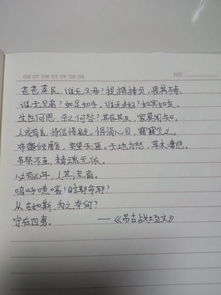 NO.
苍苍蒸民，谁无父母？提携捧负，畏其不寿。
谁无兄弟？如足如手。谁无夫妇？如宾如友。
生也何恩，杀之何咎？其存其没，家莫闻知。
人或有言，将信将疑。悁悁心目，寝寐见之。
布奠倾觞，哭望天涯。天地为愁，草木凄悲。
吊祭不至，精魂无依。
必有凶年，人其流离。
呜呼噫嘻！时耶命耶？
从古如斯，为之奈何？
守在四夷。 ——《吊古战场文》